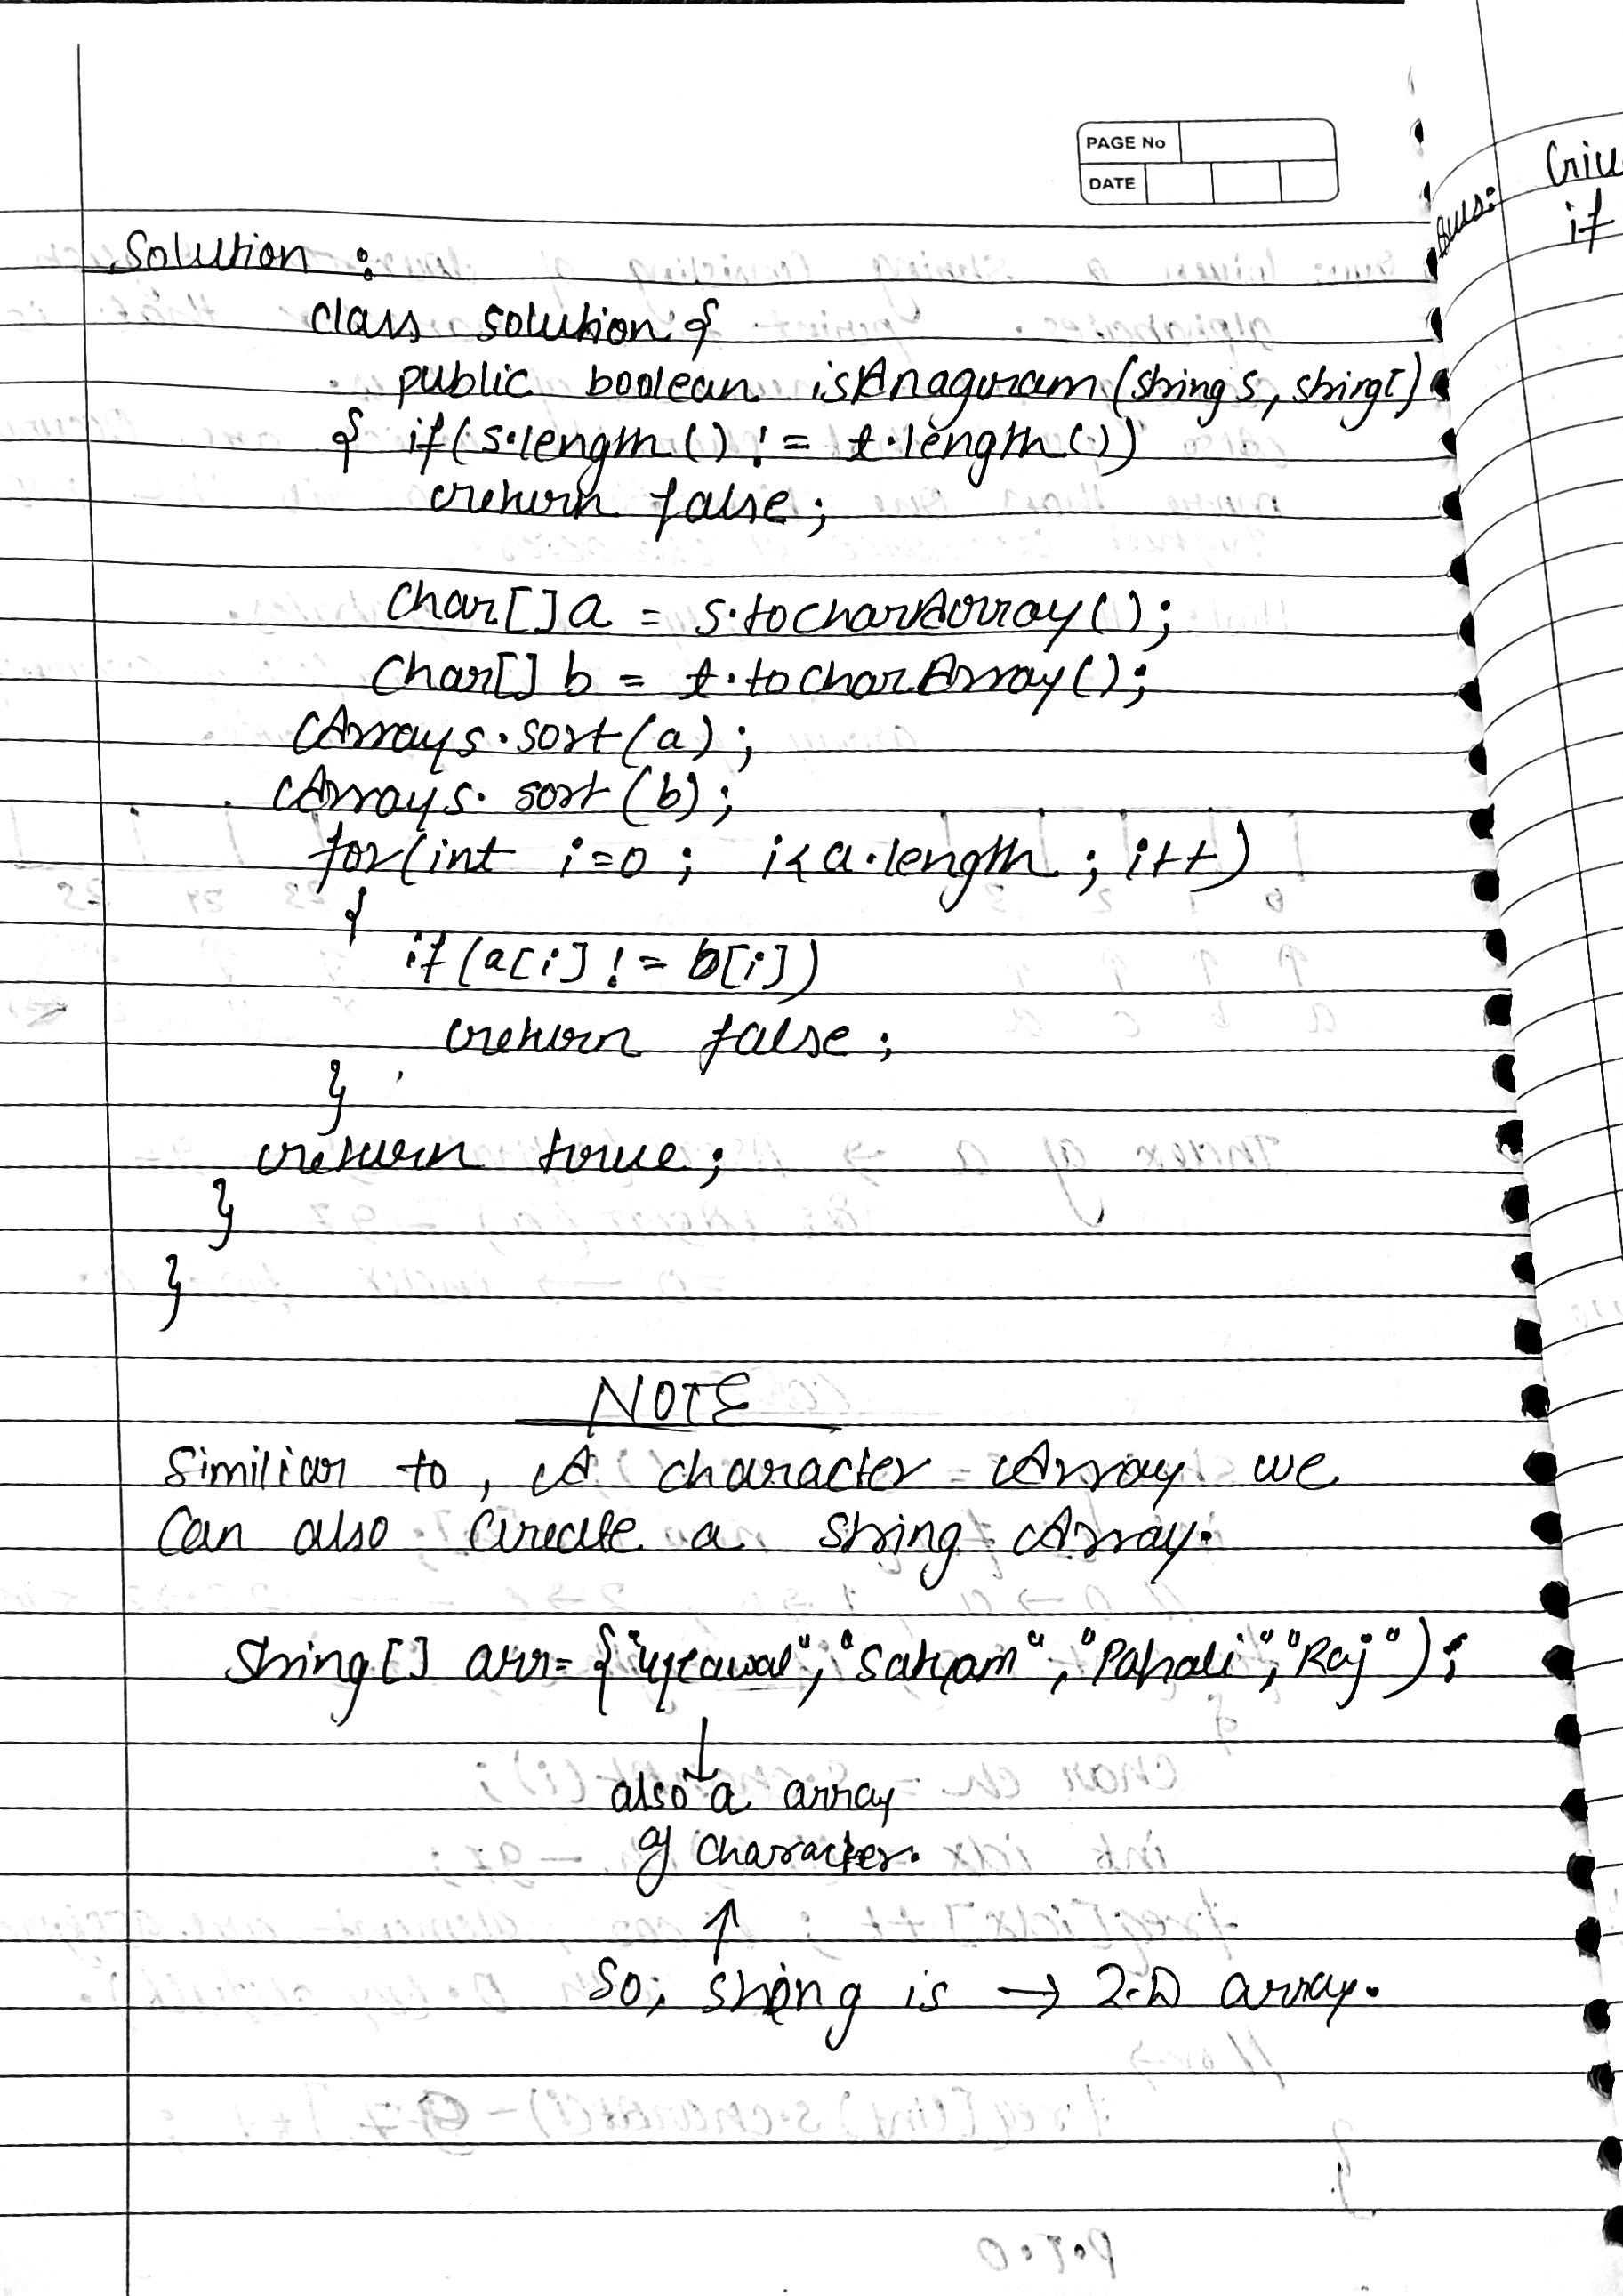 PAGE No
DATE
Ques:
if
Solution :
class solution {
public boolean isAnagram (string s, string t)
{ if (s.length () != t.length ())
return false ;
Char [] a = s.tocharArray () ;
Char [] b = t.tocharArray () ;
Arrays.sort (a) ;
Arrays. sort (b) ;
for (int i=0 ; i<a.length ; i++)
{
if (a[i] != b[i])
return false ;
}
return true ;
}
}
NOTE
Similiar to , A character Array we
Can also create a string Array.
String [] arr= { "ujjawal", "Satyam", "Pahali", "Raj" ) ;
↓
also a array
of character.
↑
So, string is → 2-D array.